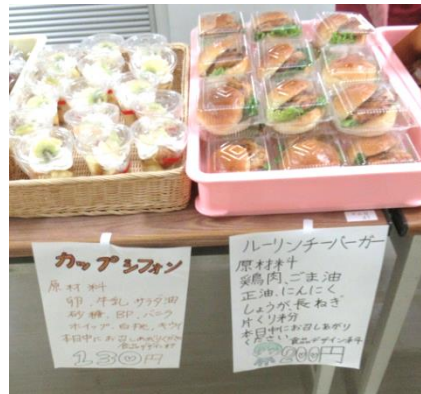 カップシフォン
原材料
卵、牛乳、サラダ油
砂糖、BP、バニラ
ホイップ、白桃、キウイ
本日中にお召しあがりください
食品デザイン科
130円
ルーリンチーバーガー
原材料
鶏肉、ごま油
正油、にんにく
しょうが、長ねぎ
片くり粉
本日中にお召しあがり
ください
食品デザイン科
200円